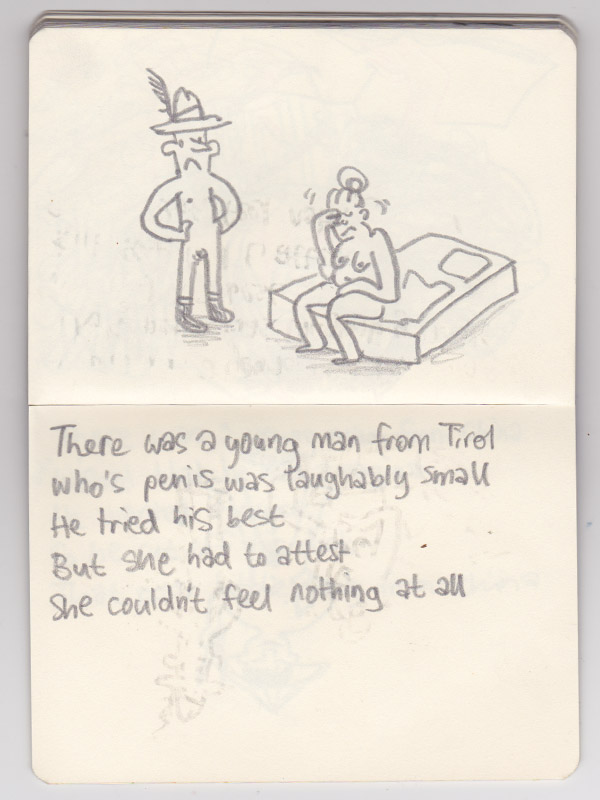 There was a young man from Tirol
who's penis was laughably small
He tried his best
But she had to attest
She couldn't feel nothing at all